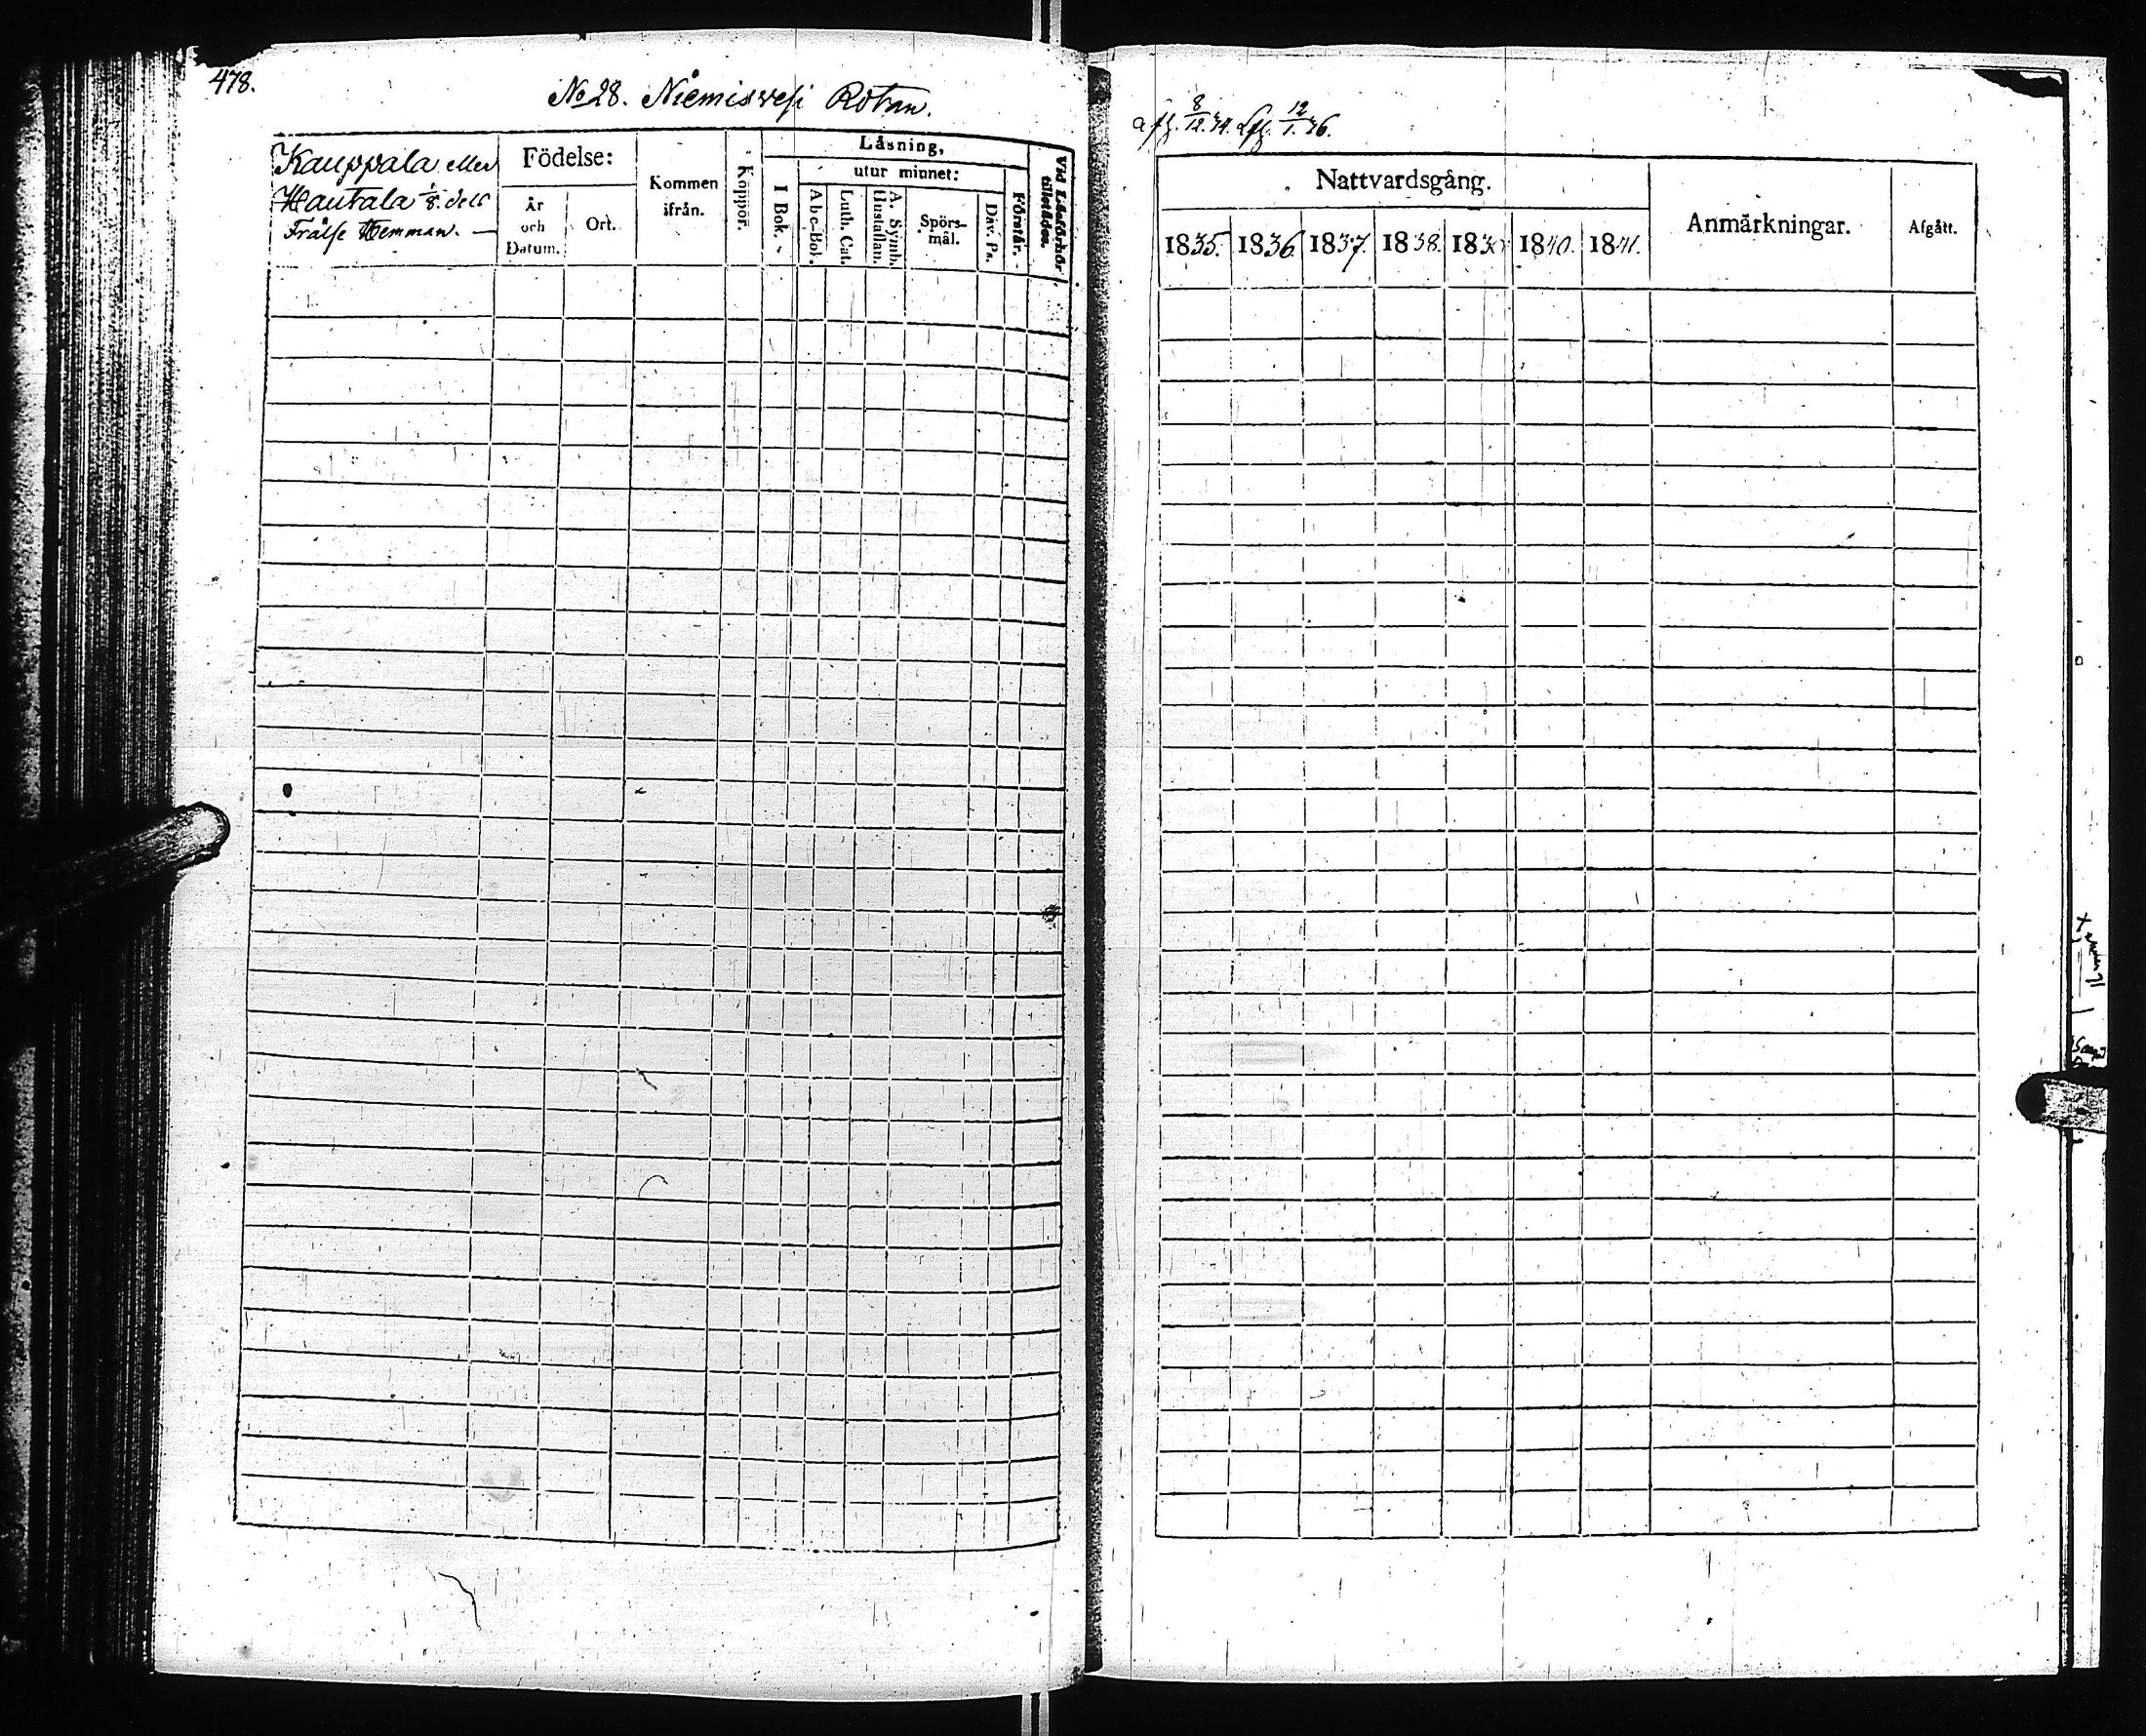 478.
No 28. Niemiswesi Rotan.
Kauppala eller
Hautala 1/8. dels
Frälse Hemman. —
Födelse:
År
och
Datum.
Ort.
Kommen
ifrån.
Koppor.
Läsning,
I Bok.
utur minnet:
Abc-Bok.
Luth. Cat.
A. Symb.
Hustaflan.
Spörs-
mål.
Dav. Ps.
Förstår.
Vid Läsförhör
tillstädes.
8/12. 12/1.
Nattvardsgång.
1835. 1836. 1837. 1838. 1839 1840. 1841.
Anmärkningar.
Afgått.